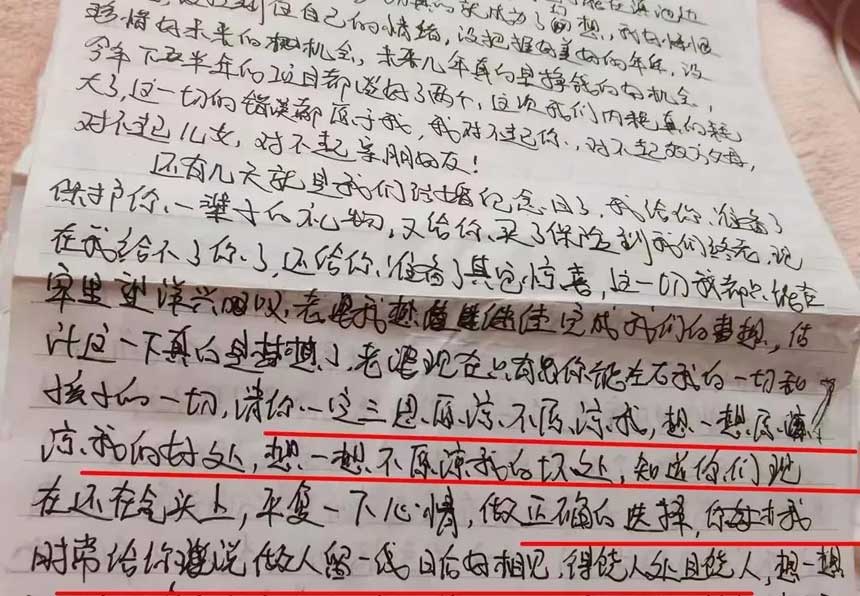 到住自己的情绪，没把握好美好的年华，没
珍惜好未来的机会，未来几年真的是挣钱的好机会，
今年下半年的项目都谈好了两个，这次我们内耗真的耗
大了，这一切的错误都原于我，我对不起你，对不起父母，
对不起儿女，对不起亲朋好友！
还有几天就是我们结婚纪念日了，我给你准备了
保护你一辈子的礼物，又给你买了保险到我们终老，现
在我给不了你了，还给你准备了其它惊喜，这一切我都只能在
望洋兴叹，老婆我想继续完成我们的梦想，估
计这一下真的是梦想了，老婆现在只有你能左右我的一切和
孩子的一切，请你一定三思原谅不原谅我，想一想原
谅我的好处，想一想不原谅我的坏处，知道你们现
在还在气头上，平复一下心情，做正确的选择，你对我
时常给你说做人留一线日后好相见，得饶人处且饶人，想一想